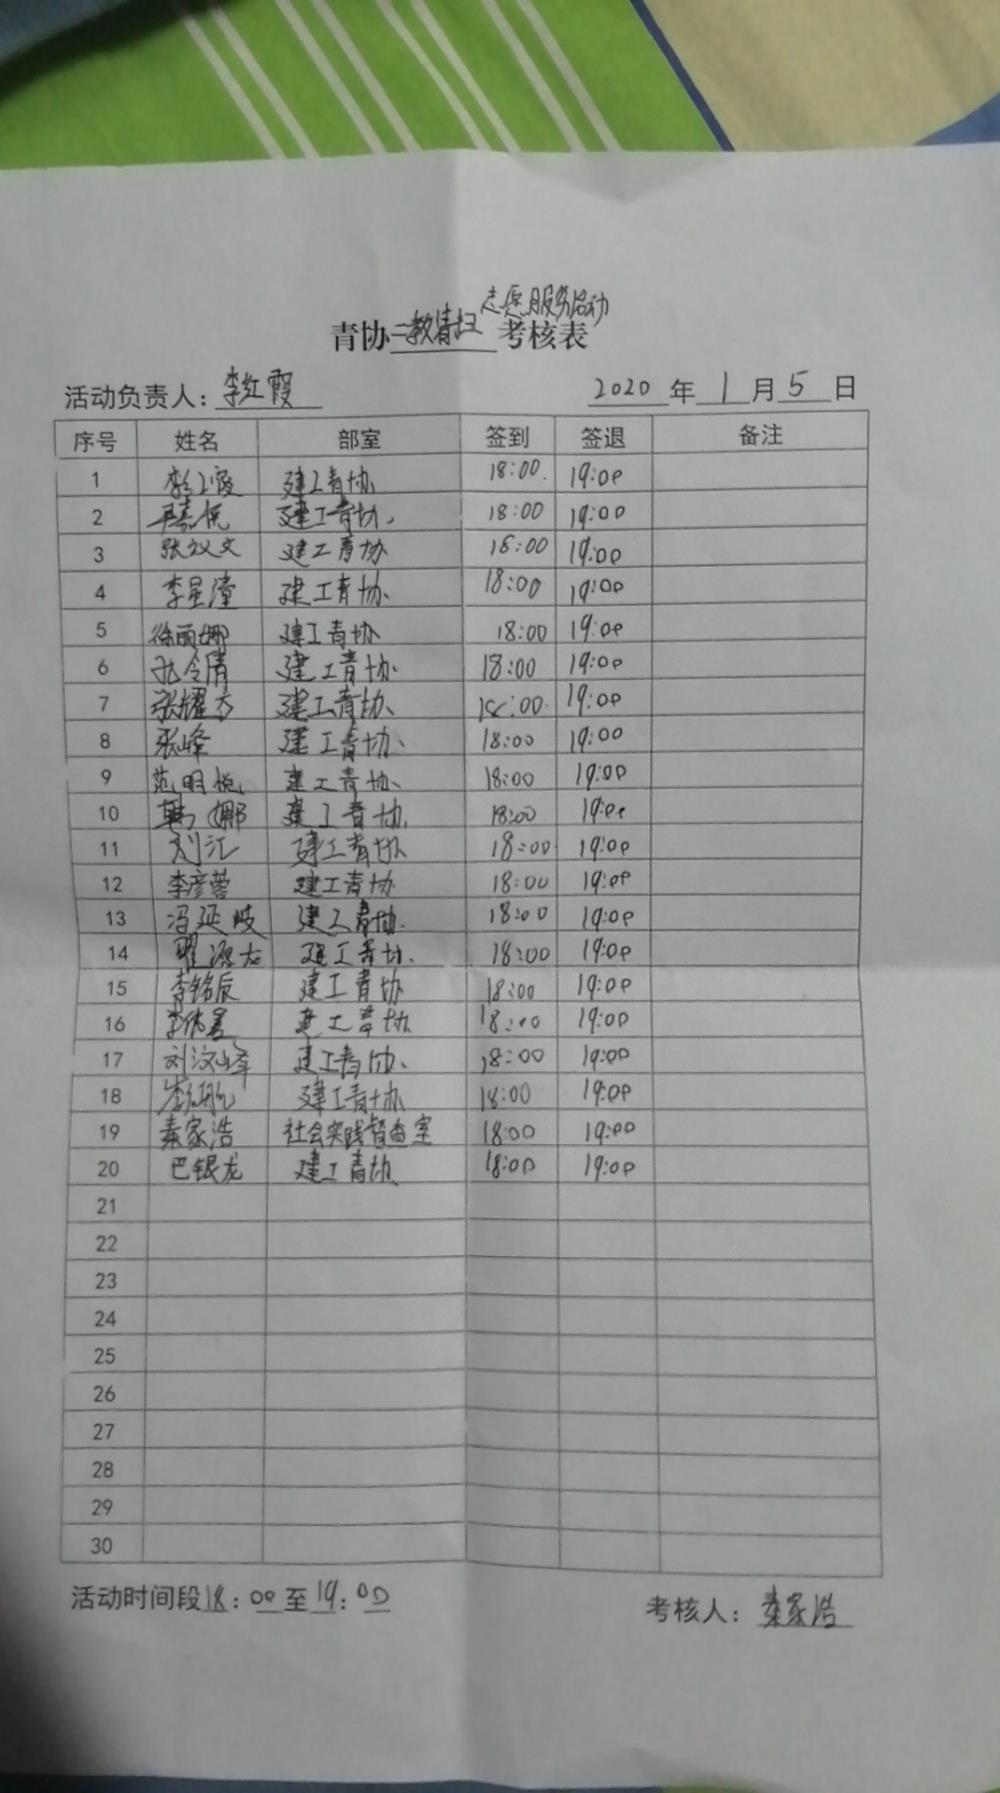 志愿服务活动
青协二教清扫考核表
活动负责人：李红霞 2020年1月5日
序号 姓名 部室 签到 签退 备注
1 李红霞 建工青协 18:00 19:00
2 建工青协 18:00 19:00
3 张议文 建工青协 18:00 19:00
4 李星潼 建工青协 18:00 19:00
5 徐丽娜 建工青协 18:00 19:00
6 建工青协 18:00 19:00
7 张耀方 建工青协 18:00 19:00
8 张峰 建工青协 18:00 19:00
9 范明悦 建工青协 18:00 19:00
10 韩娜 建工青协 18:00 19:00
11 刘汇 建工青协 18:00 19:00
12 李彦蓉 建工青协 18:00 19:00
13 冯延岐 建工青协 18:00 19:00
14 建工青协 18:00 19:00
15 李铭辰 建工青协 18:00 19:00
16 建工青协 18:00 19:00
17 刘汶峰 建工青协 18:00 19:00
18 建工青协 18:00 19:00
19 秦家浩 社会实践督查室 18:00 19:00
20 巴银龙 建工青协 18:00 19:00
21
22
23
24
25
26
27
28
29
30
活动时间段18：00至19：00 考核人：秦家浩